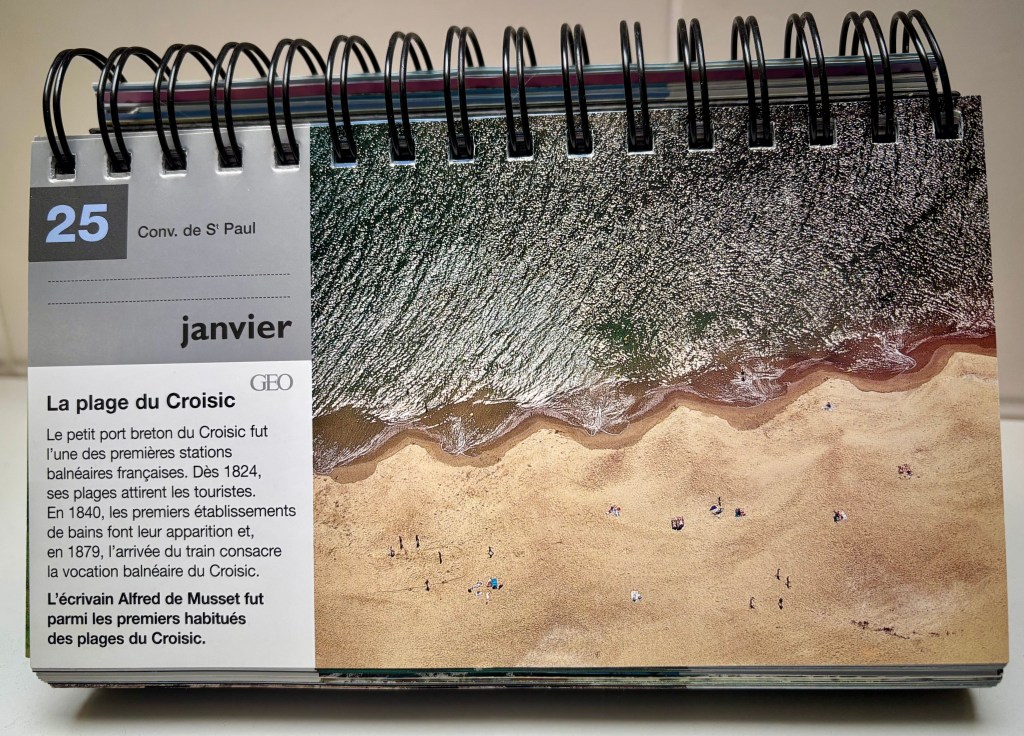 25
Conv. de Sᵗ Paul
janvier
GEO
La plage du Croisic
Le petit port breton du Croisic fut
l'une des premières stations
balnéaires françaises. Dès 1824,
ses plages attirent les touristes.
En 1840, les premiers établissements
de bains font leur apparition et,
en 1879, l'arrivée du train consacre
la vocation balnéaire du Croisic.
L'écrivain Alfred de Musset fut
parmi les premiers habitués
des plages du Croisic.